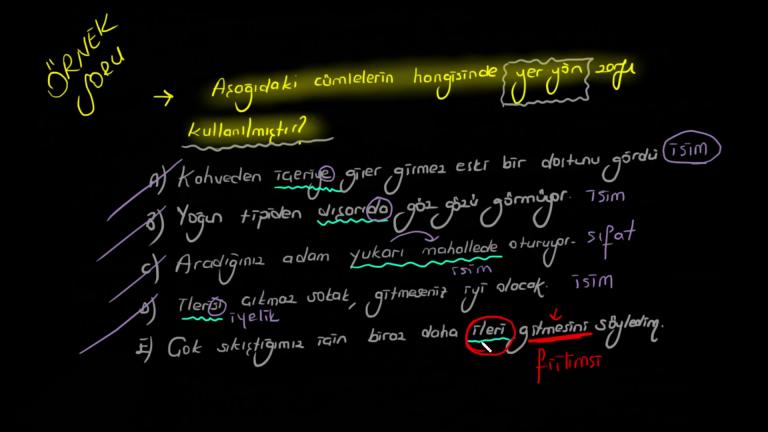 ÖRNEK
SORU
→ Aşağıdaki cümlelerin hangisinde yer yön zarfı
kullanılmıştır?
A) Kahveden içeriye girer girmez eski bir dostunu gördü isim
B) Yoğun tipiden dışarıda göz gözü görmüyor. isim
C) Aradığınız adam yukarı mahallede oturuyor. sıfat
isim
D) İlerisi çıkmaz sokak, gitmeseniz iyi olacak. isim
iyelik
E) Çok sıkıştığımız için biraz daha ileri gitmesini söyledim.
fiilimsi